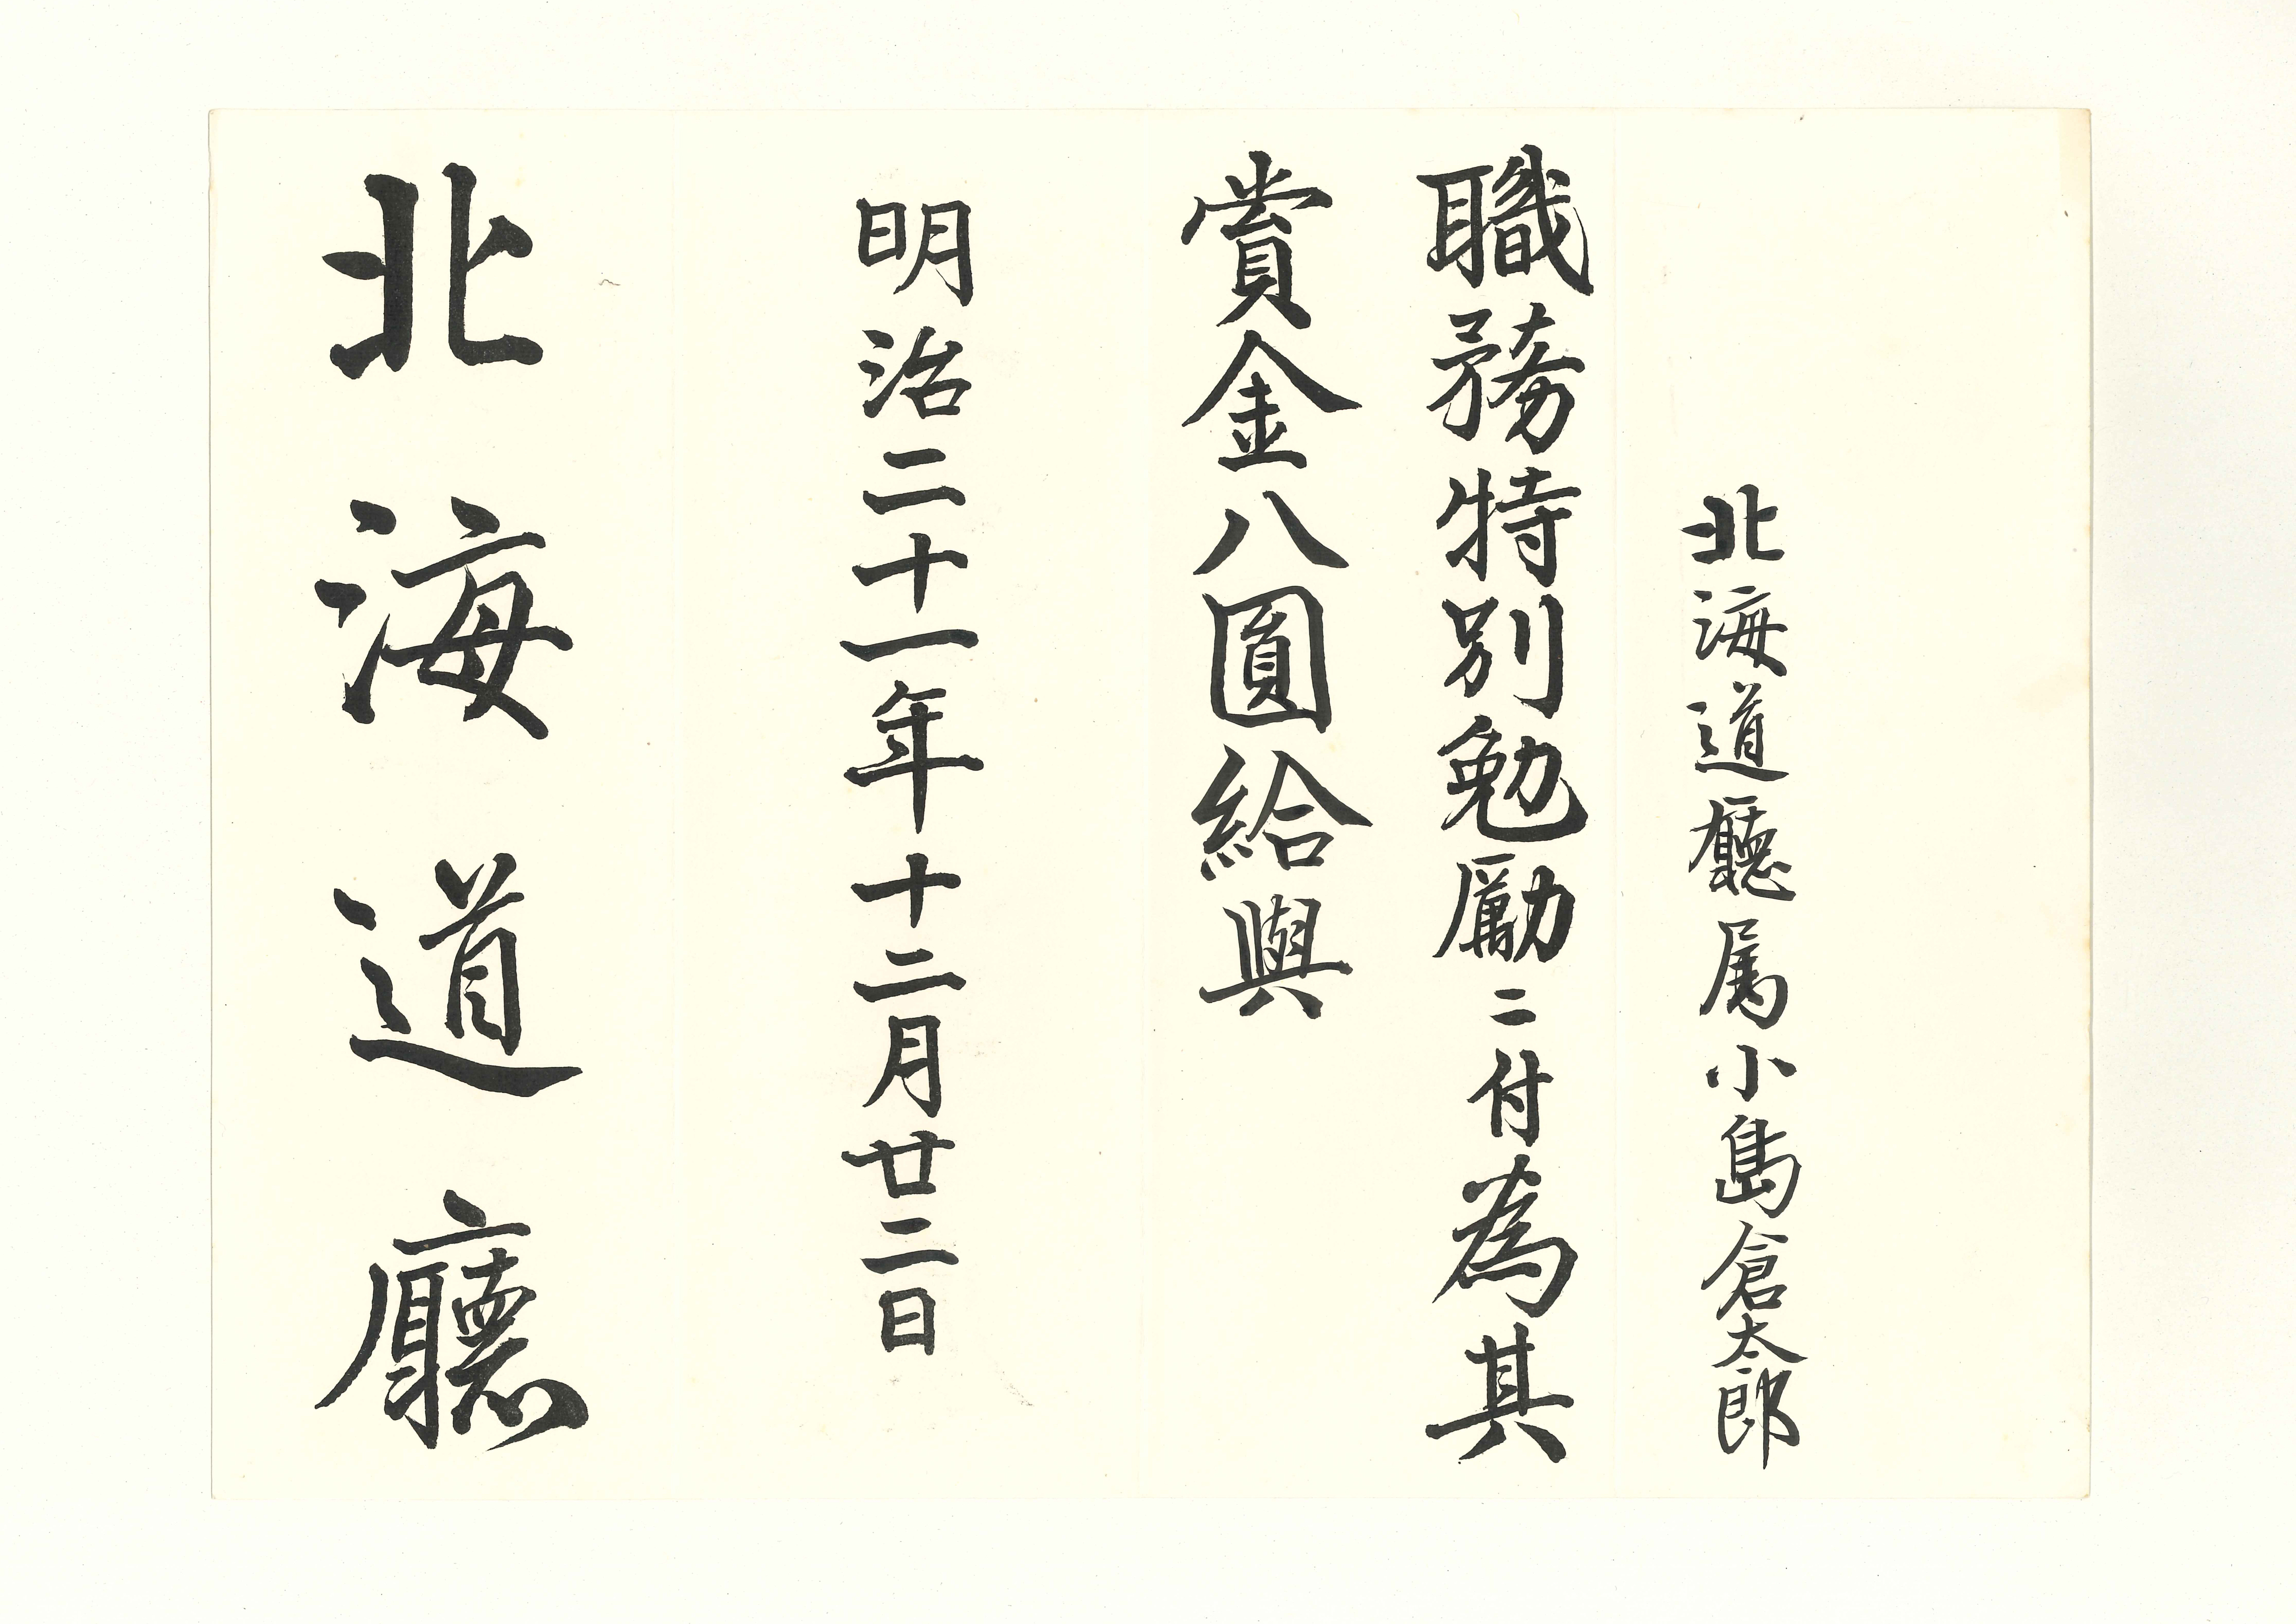 北海道廳属小島倉太郎
職務特別勉勵ニ付為其
賞金八圓給與
明治二十一年十二月廿二日
北海道廳